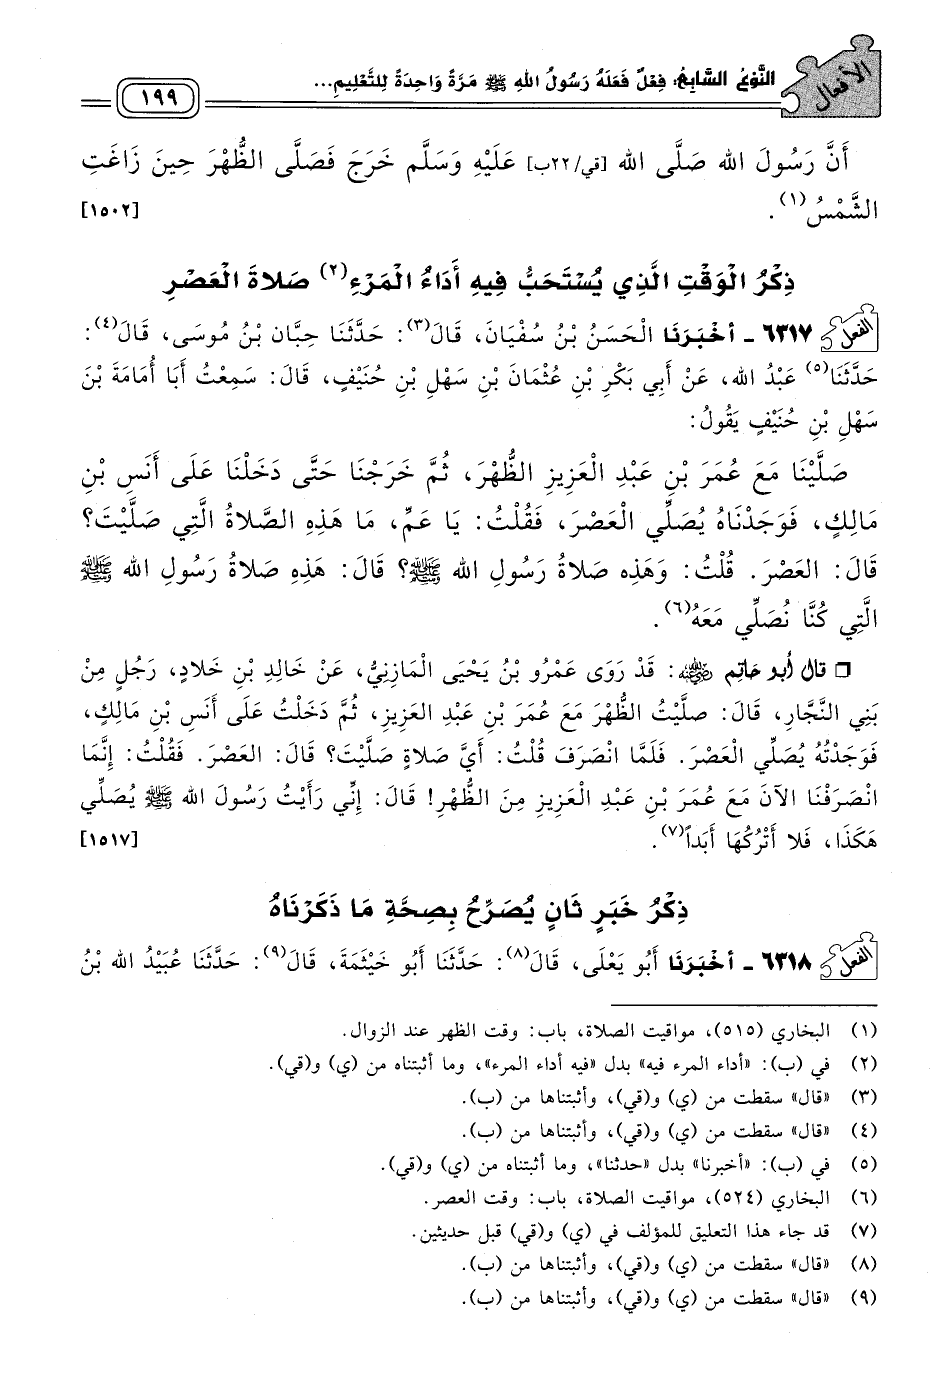 الأفعال
النَّوْعُ السَّابِعُ: فِعْلٌ فَعَلَهُ رَسُولُ اللهِ ﷺ مَرَّةً وَاحِدَةً لِلتَّعْلِيمِ...
١٩٩
أَنَّ رَسُولَ الله صَلَّى الله [قي/٢٢ب] عَلَيْهِ وَسَلَّم خَرَجَ فَصَلَّى الظُّهْرَ حِينَ زَاغَتِ
الشَّمْسُ(١). [١٥٠٢]
ذِكْرُ الْوَقْتِ الَّذِي يُسْتَحَبُّ فِيهِ أَدَاءُ الْمَرْءِ(٢) صَلاةَ الْعَصْرِ
الفعل ٦٣١٧ ـ أَخْبَرَنَا الْحَسَنُ بْنُ سُفْيَانَ، قَالَ(٣): حَدَّثَنَا حِبَّان بْنُ مُوسَى، قَالَ(٤):
حَدَّثَنَا(٥) عَبْدُ الله، عَنْ أَبِي بَكْرِ بْنِ عُثْمَانَ بْنِ سَهْلِ بْنِ حُنَيْفٍ، قَالَ: سَمِعْتُ أَبَا أُمَامَةَ بْنَ
سَهْلِ بْنِ حُنَيْفٍ يَقُولُ:
صَلَّيْنَا مَعَ عُمَرَ بْنِ عَبْدِ الْعَزِيزِ الظُّهْرَ، ثُمَّ خَرَجْنَا حَتَّى دَخَلْنَا عَلَى أَنَسِ بْنِ
مَالِكٍ، فَوَجَدْنَاهُ يُصَلِّي الْعَصْرَ، فَقُلْتُ: يَا عَمِّ، مَا هَذِهِ الصَّلاةُ الَّتِي صَلَّيْتَ؟
قَالَ: العَصْرَ. قُلْتُ: وَهَذِه صَلاةُ رَسُولِ الله ﷺ؟ قَالَ: هَذِهِ صَلاةُ رَسُولِ الله ﷺ
الَّتِي كُنَّا نُصَلِّي مَعَهُ(٦).
❒ قال أبو حاتِم رضي الله عنه: قَدْ رَوَى عَمْرُو بْنُ يَحْيَى الْمَازِنِيُّ، عَنْ خَالِدِ بْنِ خَلادٍ، رَجُلٍ مِنْ
بَنِي النَّجَّارِ، قَالَ: صلَّيْتُ الظُّهْرَ مَعَ عُمَرَ بْنِ عَبْدِ العَزِيزِ، ثُمَّ دَخَلْتُ عَلَى أَنَسِ بْنِ مَالِكٍ،
فَوَجَدْتُهُ يُصَلِّي الْعَصْرَ. فَلَمَّا انْصَرَفَ قُلْتُ: أَيَّ صَلاةٍ صَلَّيْتَ؟ قَالَ: العَصْرَ. فَقُلْتُ: إِنَّمَا
انْصَرَفْنَا الآنَ مَعَ عُمَرَ بْنِ عَبْدِ الْعَزِيزِ مِنَ الظُّهْرِ! قَالَ: إِنِّي رَأَيْتُ رَسُولَ الله ﷺ يُصَلِّي
هَكَذَا، فَلا أَتْرُكُهَا أَبَداً(٧). [١٥١٧]
ذِكْرُ خَبَرٍ ثَانٍ يُصَرِّحُ بِصِحَّةِ مَا ذَكَرْنَاهُ
الفعل ٦٣١٨ ـ أَخْبَرَنَا أَبُو يَعْلَى، قَالَ(٨): حَدَّثَنَا أَبُو خَيْثَمَةَ، قَالَ(٩): حَدَّثَنَا عُبَيْدُ الله بْنُ
(١) البخاري (٥١٥)، مواقيت الصلاة، باب: وقت الظهر عند الزوال.
(٢) في (ب): «أداء المرء فيه» بدل «فيه أداء المرء»، وما أثبتناه من (ي) و(قي).
(٣) «قال» سقطت من (ي) و(قي)، وأثبتناها من (ب).
(٤) «قال» سقطت من (ي) و(قي)، وأثبتناها من (ب).
(٥) في (ب): «أخبرنا» بدل «حدثنا»، وما أثبتناه من (ي) و(قي).
(٦) البخاري (٥٢٤)، مواقيت الصلاة، باب: وقت العصر.
(٧) قد جاء هذا التعليق للمؤلف في (ي) و(قي) قبل حديثين.
(٨) «قال» سقطت من (ي) و(قي)، وأثبتناها من (ب).
(٩) «قال» سقطت من (ي) و(قي)، وأثبتناها من (ب).